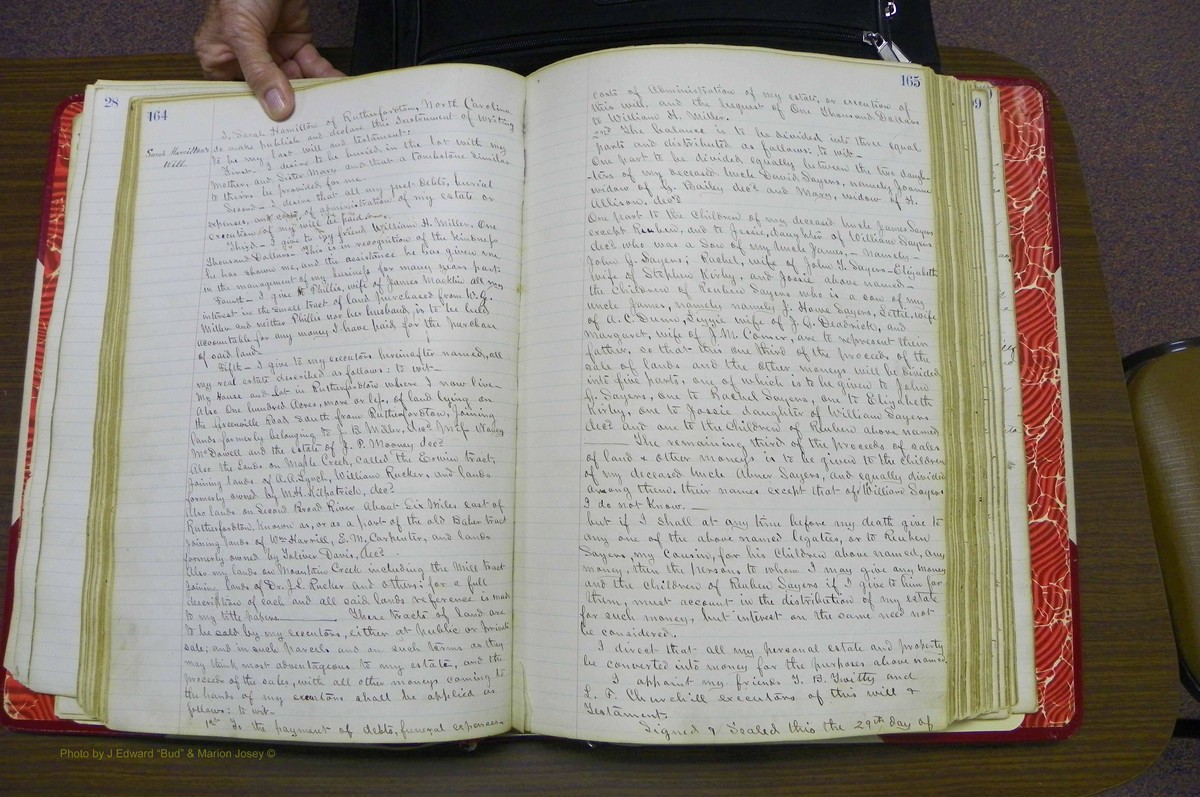 28
164
Sarah Hamilton's
Will.
I, Sarah Hamilton of Rutherfordton, North Carolina
do make publish and declare this Instrument of writing
to be my last will and testament.
First – I desire to be buried in the lot with my
Mother, and Sister Mary and that a tombstone similar
to theirs be provided for me.
Second – I desire that all my just debts, burial
expenses, and costs, of administration of my estate or
execution of my will be paid.
Third – I give to my friend William H. Miller, One
Thousand Dollars – This is in recognition of the kindness
he has shown me, and the assistance he has given me
in the management of my business for many years past.
Fourth – I give to Phillis, wife of James Macklin all my
interest in the small tract of land purchased from W. G.
Miller and neither Phillis nor her husband, is to be held
accountable for any money I have paid for the purchase
of said land.
Fifth – I give to my executors hereinafter named, all
my real estate described as follows: to wit –
My House and lot in Rutherfordton where I now live –
Also One hundred Acres, more or less, of land lying on
the Greenville Road South from Rutherfordton, joining
lands formerly belonging to B. Miller, decd
McDowell and the estate of J. P. Mooney decd
Also the lands on Maple Creek, called the Erwin tract,
joining lands of A. A. Lynch, William Rucker and lands
formerly owned by M. H. Kilpatrick, decd
Also lands on Second Broad River about Six Miles east of
Rutherfordton, known as, or as a part of the old Baber tract
joining lands of Wm Harrill, E. M. Carpenter, and lands
formerly owned by Toliver Davis, decd
Also my lands on Mountain Creek including the Mill tract
joining lands of Dr. J. L. Rucker and others: for a full
description of each and all said lands reference is made
to my title papers. These tracts of land are
to be sold by my executors, either at public or private
sale; and in such parcels and on such terms as they
may think most advantageous to my estate, and the
proceeds of the sales, with all other moneys coming to
the hands of my executors shall be applied as
follows: to wit –
1st To the payment of debts, funeral expenses
165
costs of administration of my estate, or execution of
this will, and the bequest of One Thousand Dollars
to William H. Miller.
2nd The balance is to be divided into three equal
parts and distributed as follows: to wit –
One part to be divided equally between the two daugh-
-ters of my deceased Uncle David Sayers, namely Joanna
widow of G. Bailey decd and Mary, widow of H.
Allison, decd
One part to the Children of my deceased Uncle James Sayers
except Reuben, and to Jossie, daughter of William Sayers
decd who was a Son of my Uncle James, – namely –
John G. Sayers; Rachel, wife of John T. Sayers – Elizabeth
wife of Stephen Kirby, and Jossie above named –
the Children of Reuben Sayers who is a son of my
uncle James, namely namely J. Howe Sayers, Lettie, wife
of A. C. Dunn, Lizzie wife of J. G. Deadrick, and
Margaret, wife of J. M. Comer, are to represent their
father, so that this one third of the proceeds of the
sale of lands and the other moneys will be divided
into five parts, one of which is to be given to John
G. Sayers, one to Rachel Sayers, one to Elizabeth
Kirby, one to Jossie daughter of William Sayers
decd and one to the Children of Reuben above named
The remaining third of the proceeds of sales
of land & other moneys is to be given to the children
of my deceased Uncle Abner Sayers, and equally divided
among them, their names except that of William Sayers
I do not know. –
but if I shall at any time before my death give to
any one of the above named legaties, or to Reuben
Sayers, my Cousin, for his Children above named, any
money, then the persons to whom I may give any money
and the children of Reuben Sayers if I give to him for
them, must account in the distribution of my estate
for such money, but interest on the same need not
be considered.
I direct that all my personal estate and property
be converted into money for the purposes above named.
I appoint my friends T. B. Twitty and
L. F. Churchill executors of this will &
Testament
Signed & Sealed this the 29th day of
Photo by J Edward "Bud" & Marion Josey ©